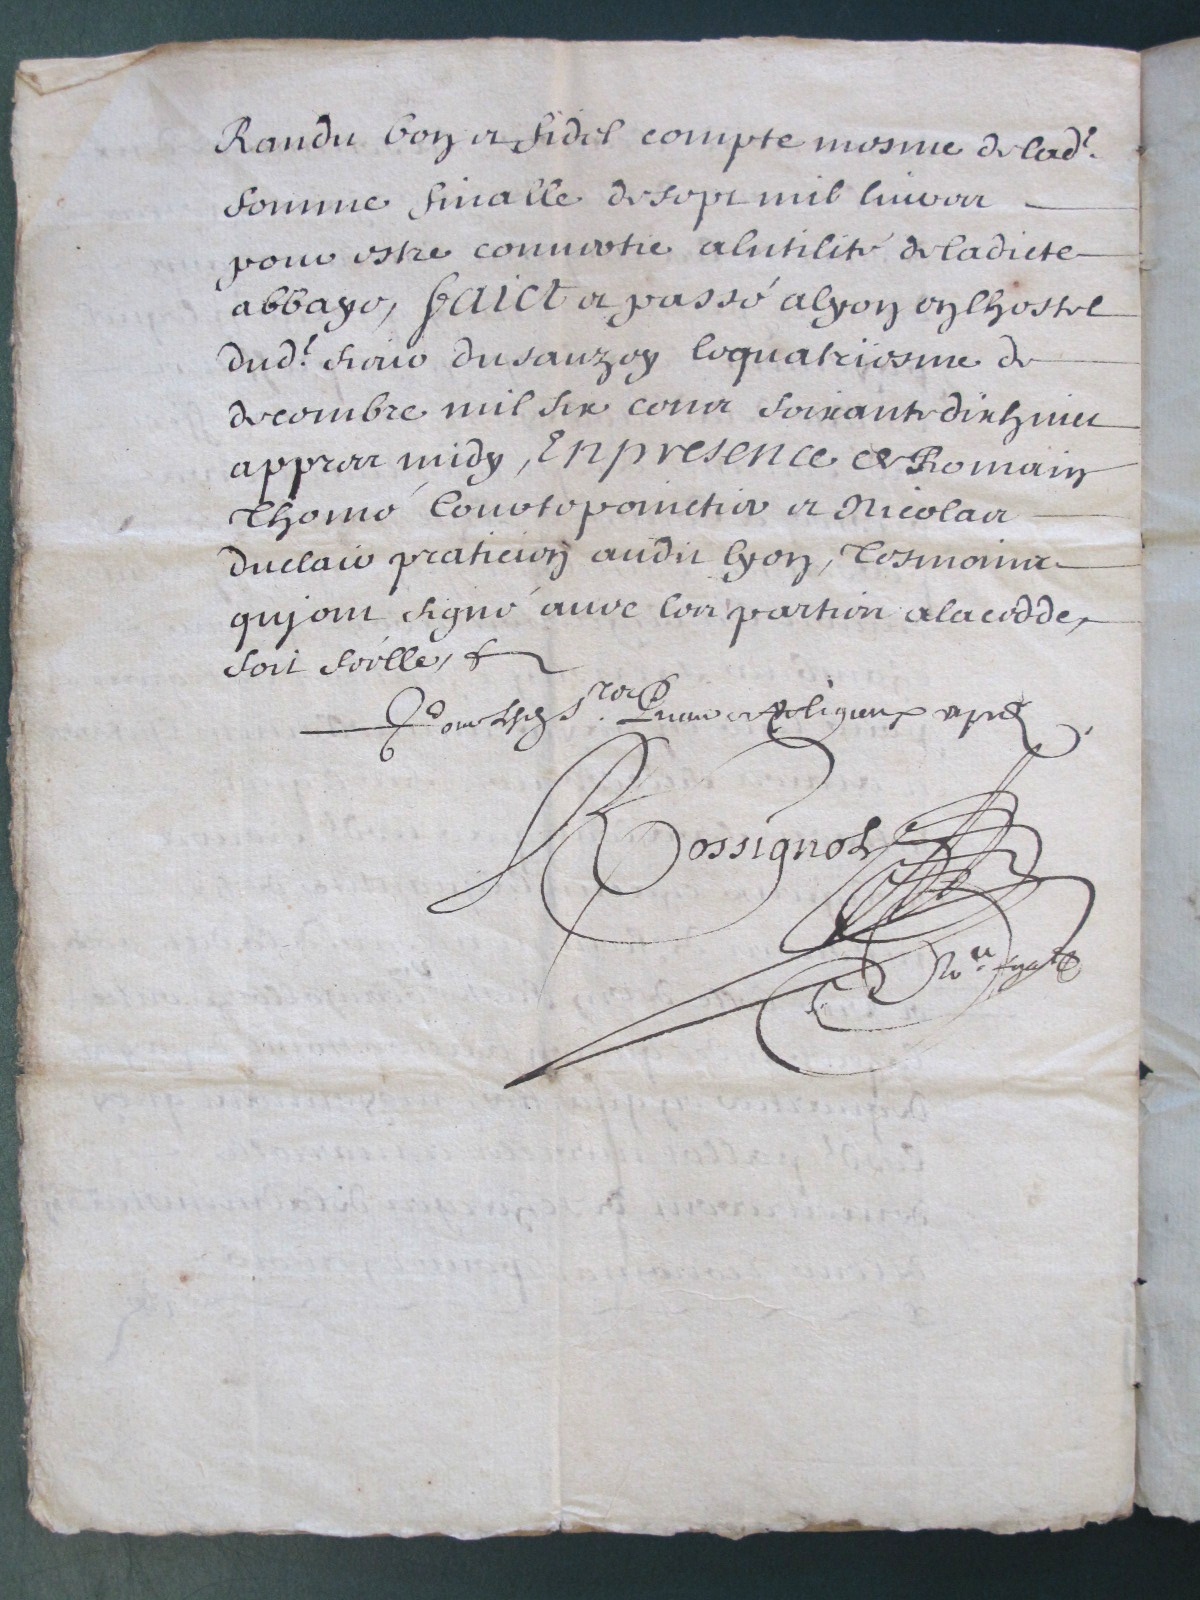 Randu bon et fidel compte mesme de lad.t
somme finalle de sept mil livres
pour estre convertie a lutilité de ladicte
abbaye, faict et passé a lyon en lhostel
dud.t sieur du sauzey le quatriesme de
decembre mil six cens soixante dix huict
appres midy, En presence de Romain
Thomé Courtepoinctier et Nicolas
duclair praticien audit lyon, Tesmoins
qui ont signé avec les parties a la cedde,
soit séelle, &
Pour Lesd. S.rs Prieur et Religieux
Rossignol
No.re